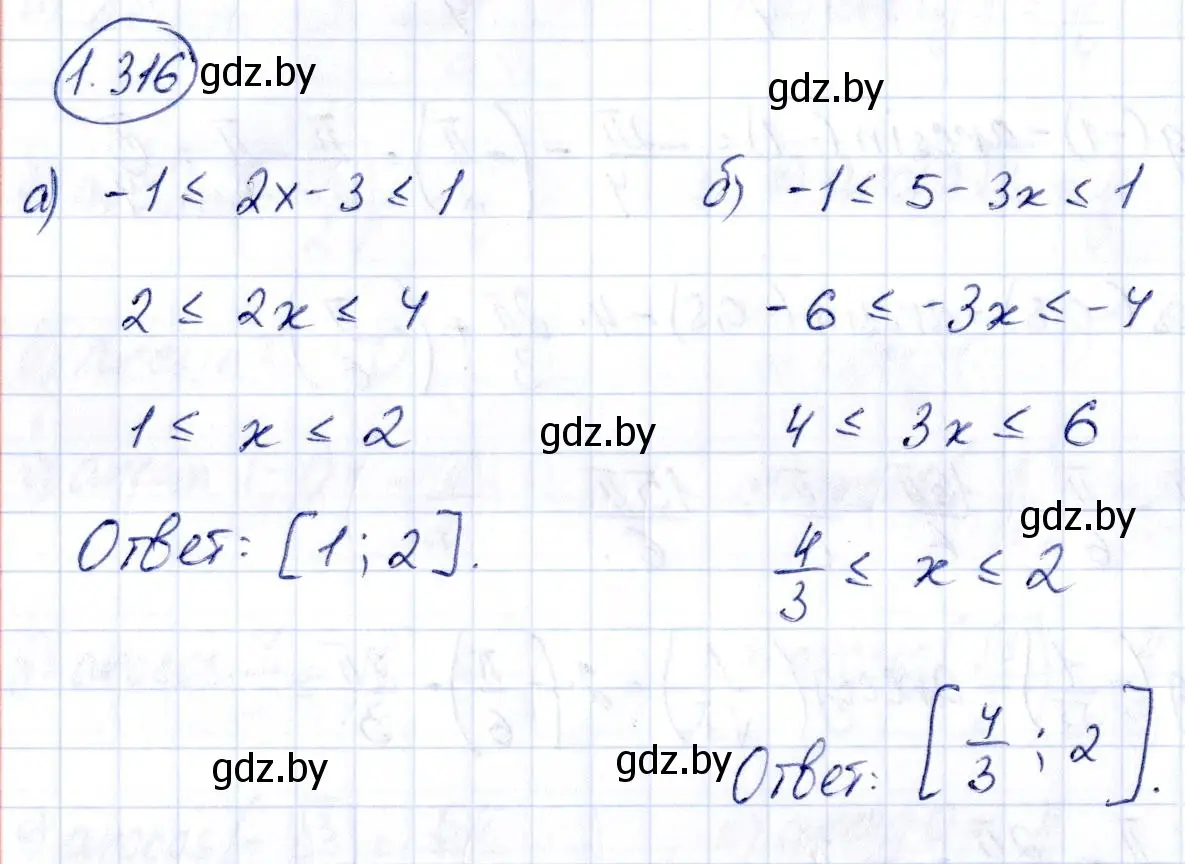 1.316 gdz.by
gdz.by
а) -1 ≤ 2x - 3 ≤ 1
2 ≤ 2x ≤ 4
1 ≤ x ≤ 2
gdz.by
Ответ: [1; 2].
б) -1 ≤ 5 - 3x ≤ 1
-6 ≤ -3x ≤ -4
4 ≤ 3x ≤ 6
gdz.by
4/3 ≤ x ≤ 2
gdz.by
gdz.by
Ответ: [4/3; 2].